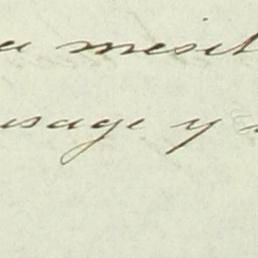 a mesit
usage y